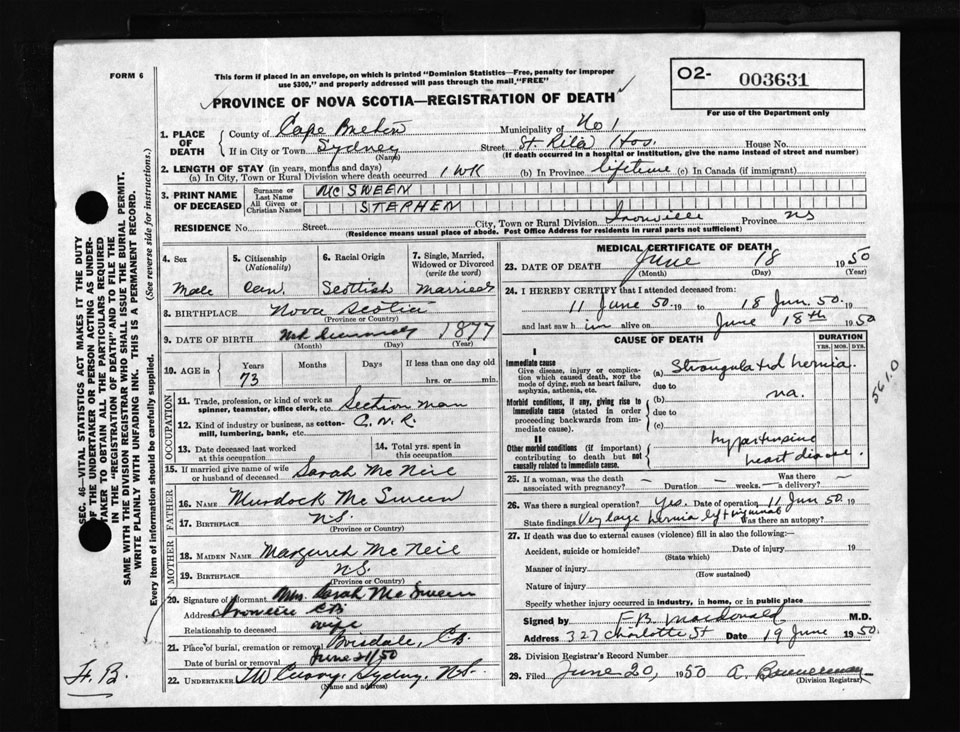 FORM 6
This form if placed in an envelope, on which is printed "Dominion Statistics—Free, penalty for improper
use $300," and properly addressed will pass through the mail "FREE"
O2- 003631
PROVINCE OF NOVA SCOTIA—REGISTRATION OF DEATH
For use of the Department only
1. PLACE OF DEATH
County of Cape Breton Municipality of No 1
If in City or Town Sydney Street St. Rita Hos. House No.
(Name) (If death occurred in a hospital or institution, give the name instead of street and number)
2. LENGTH OF STAY (in years, months and days)
(a) In City, Town or Rural Division where death occurred 1 WK (b) In Province lifetime (c) In Canada (if immigrant)
3. PRINT NAME OF DECEASED
Surname or Last Name MCSWEEN
All Given or Christian Names STEPHEN
RESIDENCE No. Street City, Town or Rural Division Ironville Province NS
(Residence means usual place of abode. Post Office Address for residents in rural parts not sufficient)
4. Sex
Male
5. Citizenship (Nationality)
Can.
6. Racial Origin
Scottish
7. Single, Married, Widowed or Divorced (write the word)
Married
8. BIRTHPLACE Nova Scotia
(Province or Country)
9. DATE OF BIRTH 1877
(Month) (Day) (Year)
10. AGE in Years Months Days If less than one day old
73 hrs. or min.
OCCUPATION
11. Trade, profession, or kind of work as spinner, teamster, office clerk, etc. Section man
12. Kind of industry or business, as cotton-mill, lumbering, bank, etc. C.N.R.
13. Date deceased last worked at this occupation
14. Total yrs. spent in this occupation
15. If married give name of wife or husband of deceased Sarah McNeil
FATHER
16. NAME Murdock McSween
17. BIRTHPLACE N.S.
(Province or Country)
MOTHER
18. MAIDEN NAME Margaret McNeil
19. BIRTHPLACE N.S.
(Province or Country)
20. Signature of informant Mrs. Sarah McSween
Address Ironville CB
Relationship to deceased wife
21. Place of burial, cremation or removal Boisdale, C.B.
Date of burial or removal June 21/50
22. UNDERTAKER T W Curry, Sydney, N.S.
(Name and address)
MEDICAL CERTIFICATE OF DEATH
23. DATE OF DEATH June 18 1950
(Month) (Day) (Year)
24. I HEREBY CERTIFY that I attended deceased from:
11 June 50. 19 to 18 Jun. 50. 19
and last saw him alive on June 18th 1950
CAUSE OF DEATH
DURATION
YRS. MOS. DYS.
I
Immediate cause
Give disease, injury or complication which caused death, not the mode of dying, such as heart failure, asphyxia, asthenia, etc.
(a) Strangulated hernia
due to
Morbid conditions, if any, giving rise to immediate cause (stated in order proceeding backwards from immediate cause).
(b) na.
due to
(c)
II
Other morbid conditions (if important) contributing to death but not causally related to immediate cause.
hypertensive
heart disease.
561.0
25. If a woman, was the death associated with pregnancy? — Duration — weeks. Was there a delivery? —
26. Was there a surgical operation? Yes. Date of operation 11 Jun 50. 19
State findings Very large hernia left inguinal Was there an autopsy?
27. If death was due to external causes (violence) fill in also the following:—
Accident, suicide or homicide? Date of injury 19
(State which)
Manner of injury
(How sustained)
Nature of injury
Specify whether injury occurred in industry, in home, or in public place
Signed by F B MacDonald M.D.
Address 327 Charlotte St Date 19 June 1950.
28. Division Registrar's Record Number
29. Filed June 20, 1950 A.
(Division Registrar)
SEC. 46—VITAL STATISTICS ACT MAKES IT THE DUTY
OF THE UNDERTAKER OR PERSON ACTING AS UNDER-
TAKER TO OBTAIN ALL THE PARTICULARS REQUIRED
IN THE "REGISTRATION OF DEATH" AND TO FILE THE
SAME WITH THE DIVISION REGISTRAR WHO SHALL ISSUE THE BURIAL PERMIT.
WRITE PLAINLY WITH UNFADING INK. THIS IS A PERMANENT RECORD.
Every item of information should be carefully supplied. (See reverse side for instructions.)
F.B.